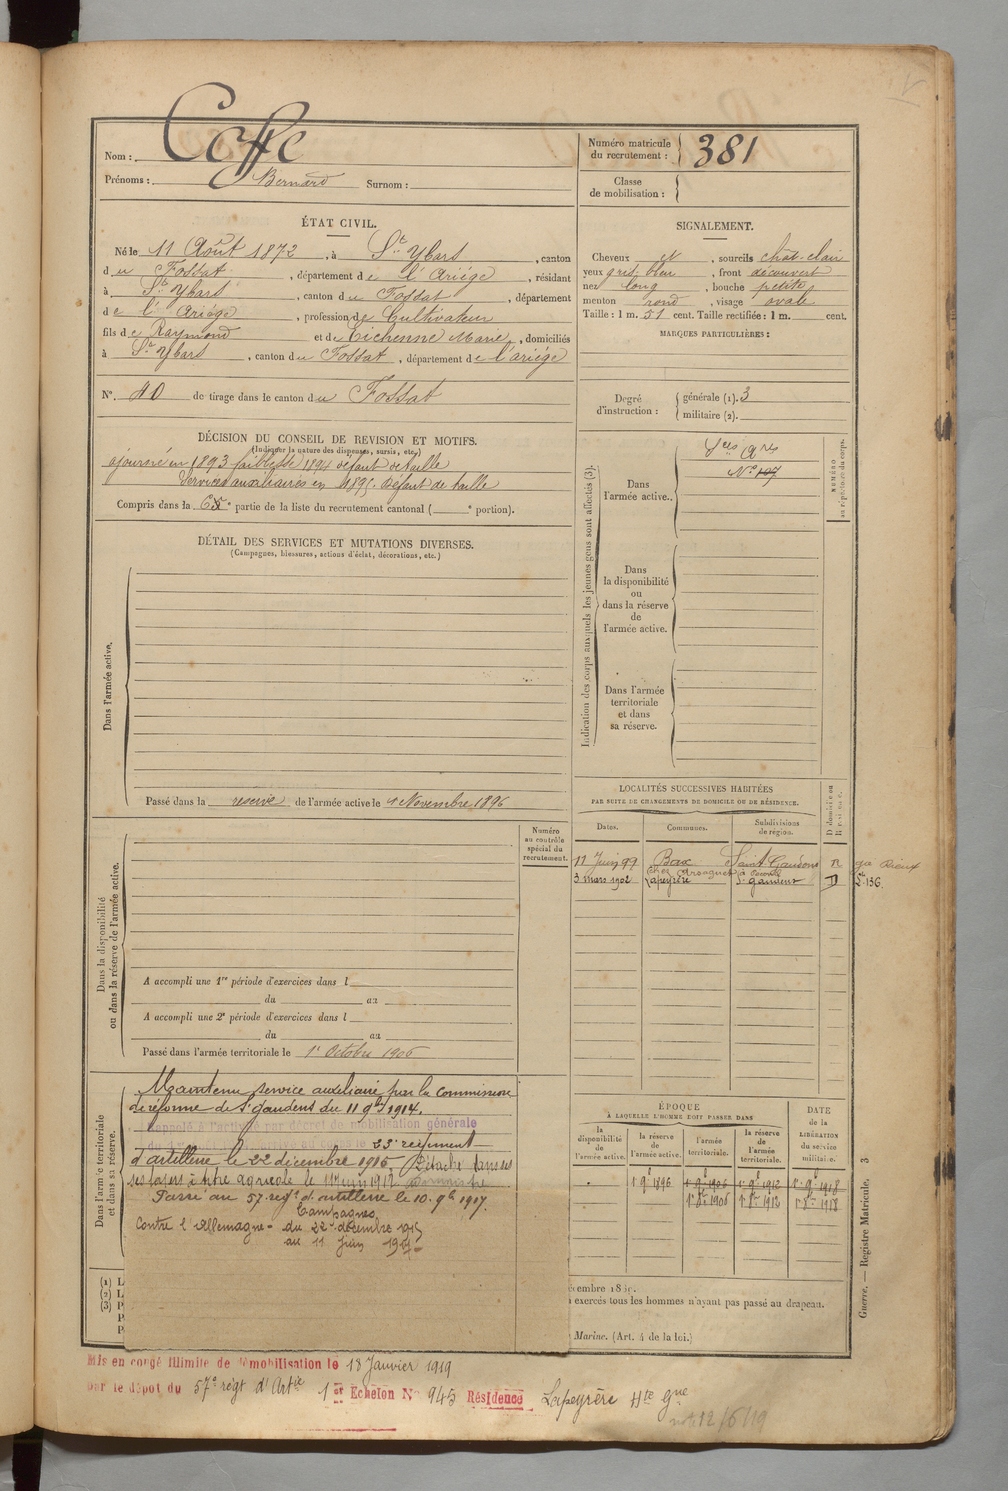 Nom : Coffe
Prénoms : Bernard Surnom :
Numéro matricule
du recrutement : 381
Classe
de mobilisation :
ÉTAT CIVIL.
Né le 11 Août 1872, à St Ybars, canton
du Fossat, département de l'Ariége, résidant
à St Ybars, canton du Fossat, département
de l'Ariége, profession de Cultivateur
fils de Raymond et de Eichenne Marie, domiciliés
à St Ybars, canton du Fossat, département de l'ariége
N° 40 de tirage dans le canton du Fossat
SIGNALEMENT.
Cheveux N, sourcils chât-clair
yeux gris bleu, front découvert
nez long, bouche petite
menton rond, visage ovale
Taille : 1 m. 51 cent. Taille rectifiée : 1 m. cent.
MARQUES PARTICULIÈRES :
Degré
d'instruction :
générale (1). 3
militaire (2).
DÉCISION DU CONSEIL DE REVISION ET MOTIFS.
(Indiquer la nature des dispenses, sursis, etc.)
ajourné en 1893 faiblesse 1894 défaut de taille
Services auxiliaires en 1895. Défaut de taille
Compris dans la 6e partie de la liste du recrutement cantonal ( e portion).
DÉTAIL DES SERVICES ET MUTATIONS DIVERSES.
(Campagnes, blessures, actions d'éclat, décorations, etc.)
Dans l'armée active.
Passé dans la réserve de l'armée active le 1 Novembre 1896
Indication des corps auxquels les jeunes gens sont affectés (3).
NUMÉRO
au répertoire du corps.
Dans
l'armée active..
Sces Ares
N° 107
Dans
la disponibilité
ou
dans la réserve
de
l'armée active.
Dans l'armée
territoriale
et dans
sa réserve.
LOCALITÉS SUCCESSIVES HABITÉES
PAR SUITE DE CHANGEMENTS DE DOMICILE OU DE RÉSIDENCE.
D domicile ou
R résidence.
Dates. Communes. Subdivisions
de région.
11 Juin 99 Bax Saint-Gaudens R
chez
3 mars 1902 Lapeyrère St gaudens D
Numéro
au contrôle
spécial du
recrutement.
Dans la disponibilité
ou dans la réserve de l'armée active.
A accompli une 1re période d'exercices dans l
du au
A accompli une 2e période d'exercices dans l
du au
Passé dans l'armée territoriale le 1r Octobre 1906
Dans l'armée territoriale
et dans sa réserve.
Maintenu service auxiliaire par la Commission
de réforme de St gaudens du 11 9bre 1914.
Rappelé à l'activité par décret de mobilisation générale
23e régiment
d'artillerie le 22 décembre 1915 Détaché dans ses
ses foyers à titre agricole le 11 juin 1917.
Passé au 57e regt d'artillerie le 10. 9b 1917.
Campagnes
Contre l'Allemagne - du 22 décembre 1915
au 11 Juin 1917-
ÉPOQUE
À LAQUELLE L'HOMME DOIT PASSER DANS
DATE
de la
LIBÉRATION
du service
militaire.
la
disponibilité
de
l'armée active.
la réserve
de
l'armée active.
l'armée
territoriale.
la réserve
de
l'armée
territoriale.
1r 9b 1896 1r 9b 1906 1r 9b 1912 1r 9b 1918
1r 8bre 1906 1r 8bre 1912 1r 8bre 1918
(1) L
(2) L
(3) P
P
P
exercés tous les hommes n'ayant pas passé au drapeau.
Marine. (Art. 4 de la loi.)
Guerre. — Registre Matricule. 3
Mis en congé illimité de démobilisation le 18 Janvier 1919
par le dépôt du 57e regt d'Artie 1er Echelon N° 945 Résidence Lapeyrère Hte Gne
12/6/19